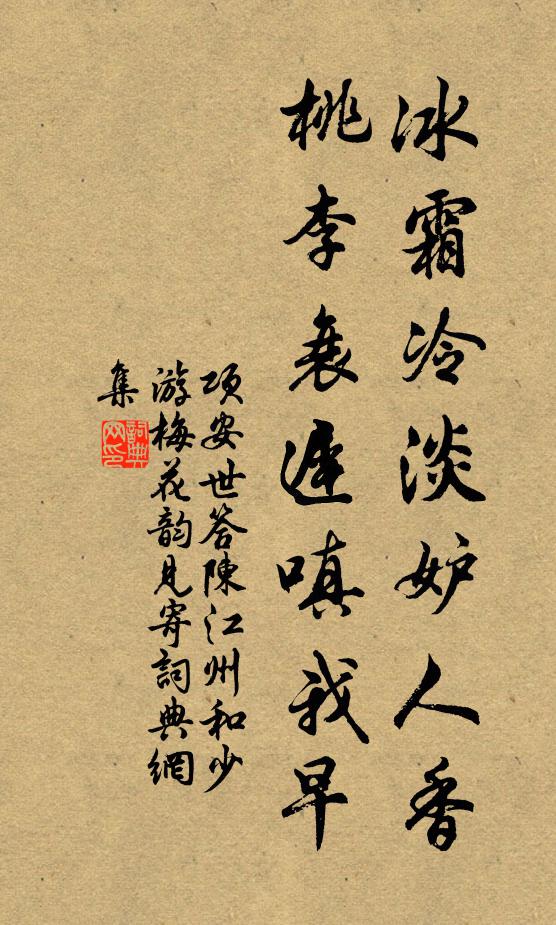 冰霜冷淡妒人香
桃李衰遲嗔我早
項安世答陳江州和少
游梅花韵見寄詞典網
集
詞典
网印